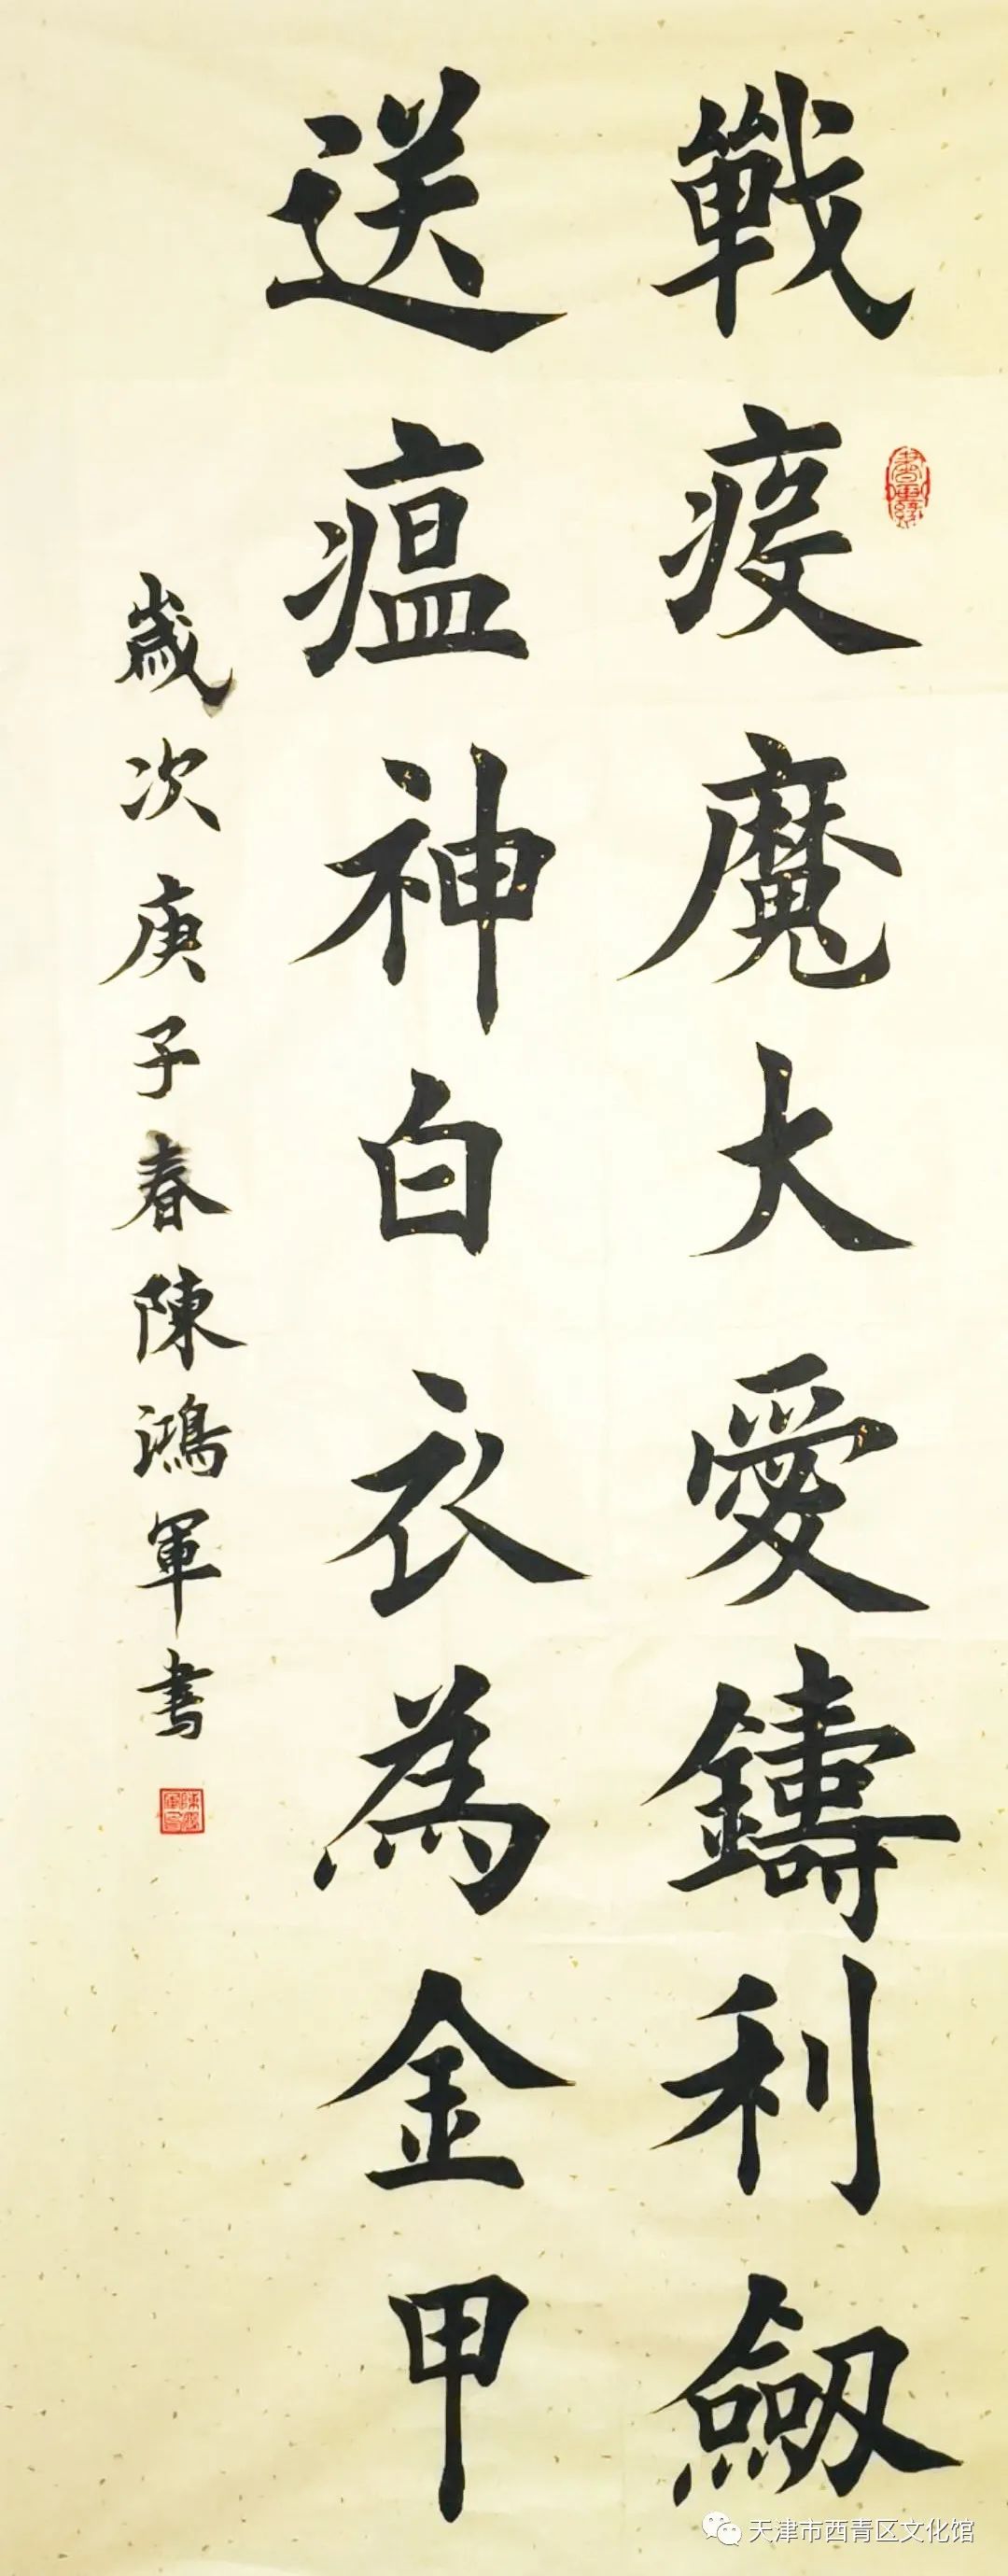 戰疫魔大愛鑄利劔
送瘟神白衣為金甲
歲次庚子春陳鴻軍書
天津市西青区文化馆